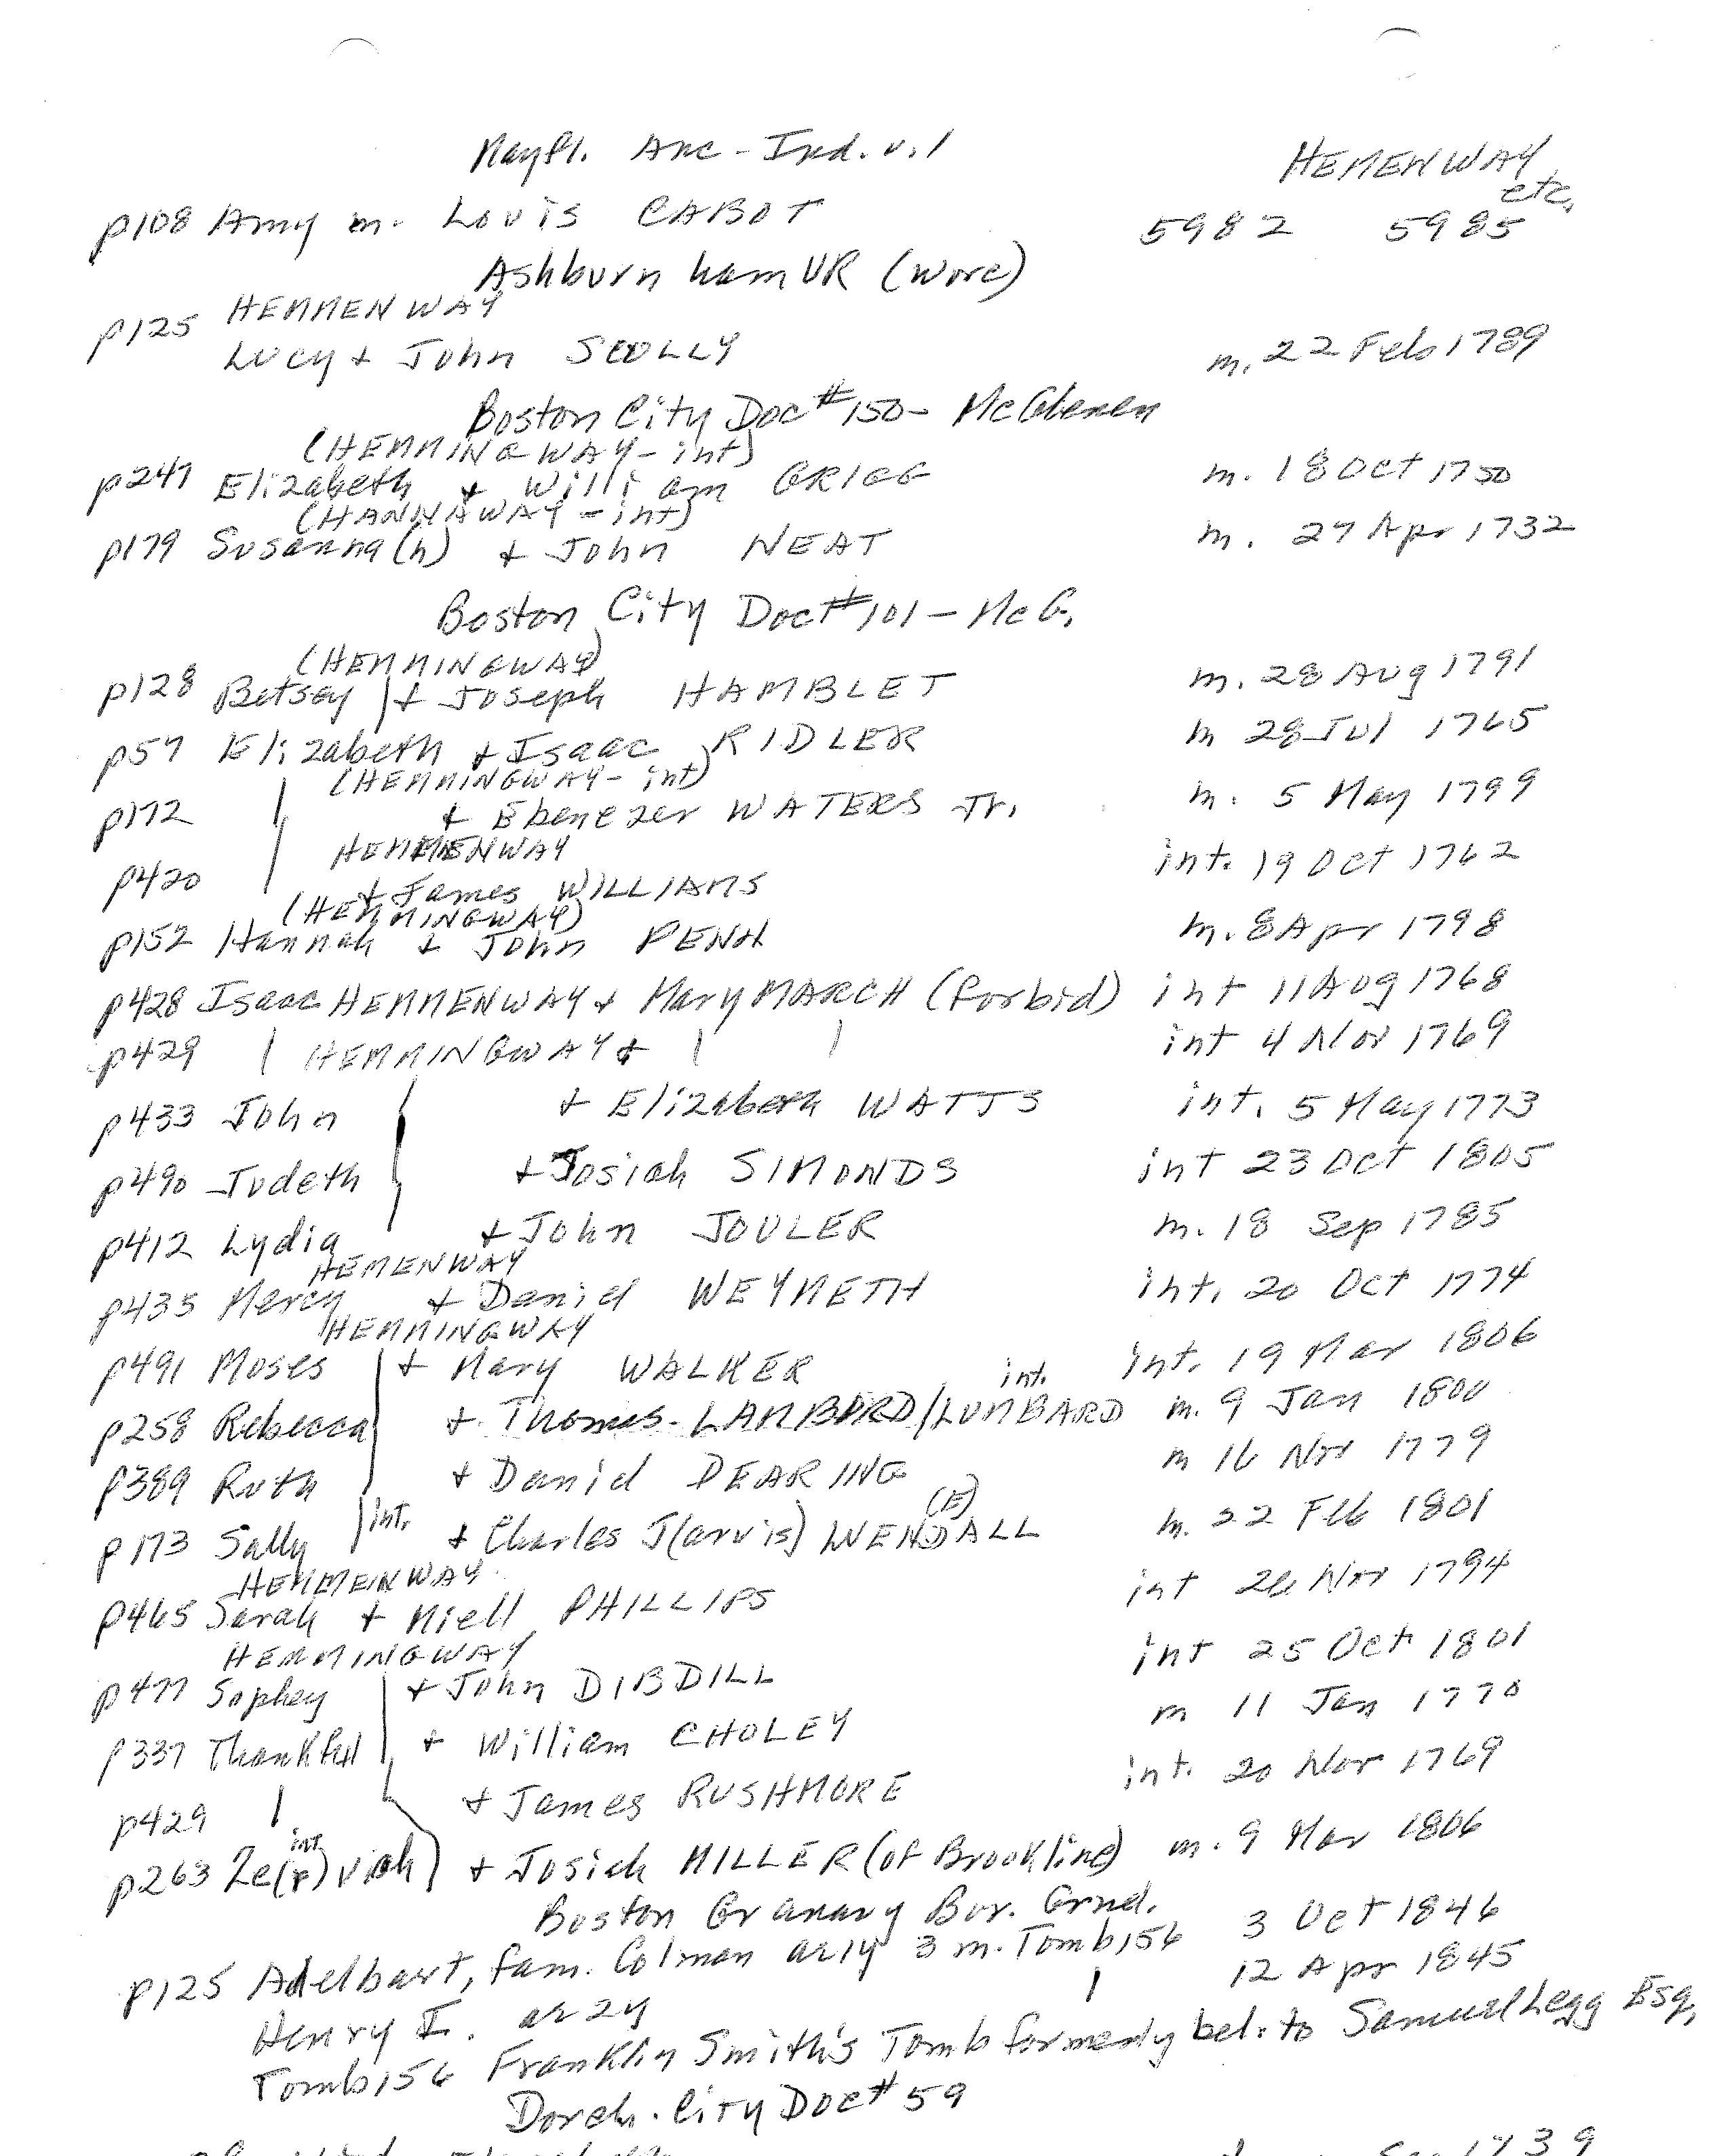 Mayfl. Anc - Ind. v. 1
HEMENWAY etc.
p108 Amy m. Louis CABOT 5982 5985
Ashburnham VR (Worc)
HEMMENWAY
p125 Lucy + John SCOLLY m. 22 Feb 1789
Boston City Doc # 150 - McGlenen
(HEMMINGWAY - int)
p247 Elizabeth + William GRIGG m. 18 Oct 1750
(HANNAWAY - int)
p179 Susanna(h) + John NEAT m. 27 Apr 1732
Boston City Doc # 101 - McG.
(HEMMINGWAY)
p128 Betsey + Joseph HAMBLET m. 28 Aug 1791
p57 Elizabeth + Isaac RIDLER m 28 Jul 1765
(HEMMINGWAY - int)
p172 + Ebenezer WATERS Jr. m. 5 May 1799
HEMMENWAY
p420 + James WILLIAMS int. 19 Oct 1762
(HEMMINGWAY)
p152 Hannah + John PENN m. 8 Apr 1798
p428 Isaac HEMMENWAY + Mary MARCH (forbid) int 11 Aug 1768
p429 HEMMINGWAY + int 4 Nov 1769
p433 John + Elizabeth WATTS int. 5 May 1773
p490 Judeth + Josiah SIMONDS int 23 Oct 1805
p412 Lydia + John JOULER m. 18 Sep 1785
HEMENWAY
p435 Mercy + Daniel WEYMETH int. 20 Oct 1774
HEMMINGWAY
p491 Moses + Mary WALKER int. 19 Mar 1806
int.
p258 Rebecca + Thomas LAMBARD/LUMBARD m. 9 Jan 1800
p389 Ruth + Daniel DEARING m 16 Nov 1779
(E)
p173 Sally int. + Charles J(arvis) WENDALL m. 22 Feb 1801
HEMMENWAY
p465 Sarah + Niell PHILLIPS int 26 Nov 1794
HEMMINGWAY
p477 Sophey + John DIBDILL int 25 Oct 1801
p337 Thankful + William CHOLEY m 11 Jan 1770
p429 + James RUSHMORE int. 20 Nov 1769
int
p263 Ze(r)viah + Josiah MILLER (of Brookline) m. 9 Mar 1806
Boston Granary Bur. Grnd.
p125 Adelbart, fam. Colman ae 1y 3 m. Tomb 156 3 Oct 1846
Henry I. ae 2y 12 Apr 1845
Tomb 156 Franklin Smith's Tomb formerly bel. to Samuel Legg Esq.
Dorch. City Doc # 59